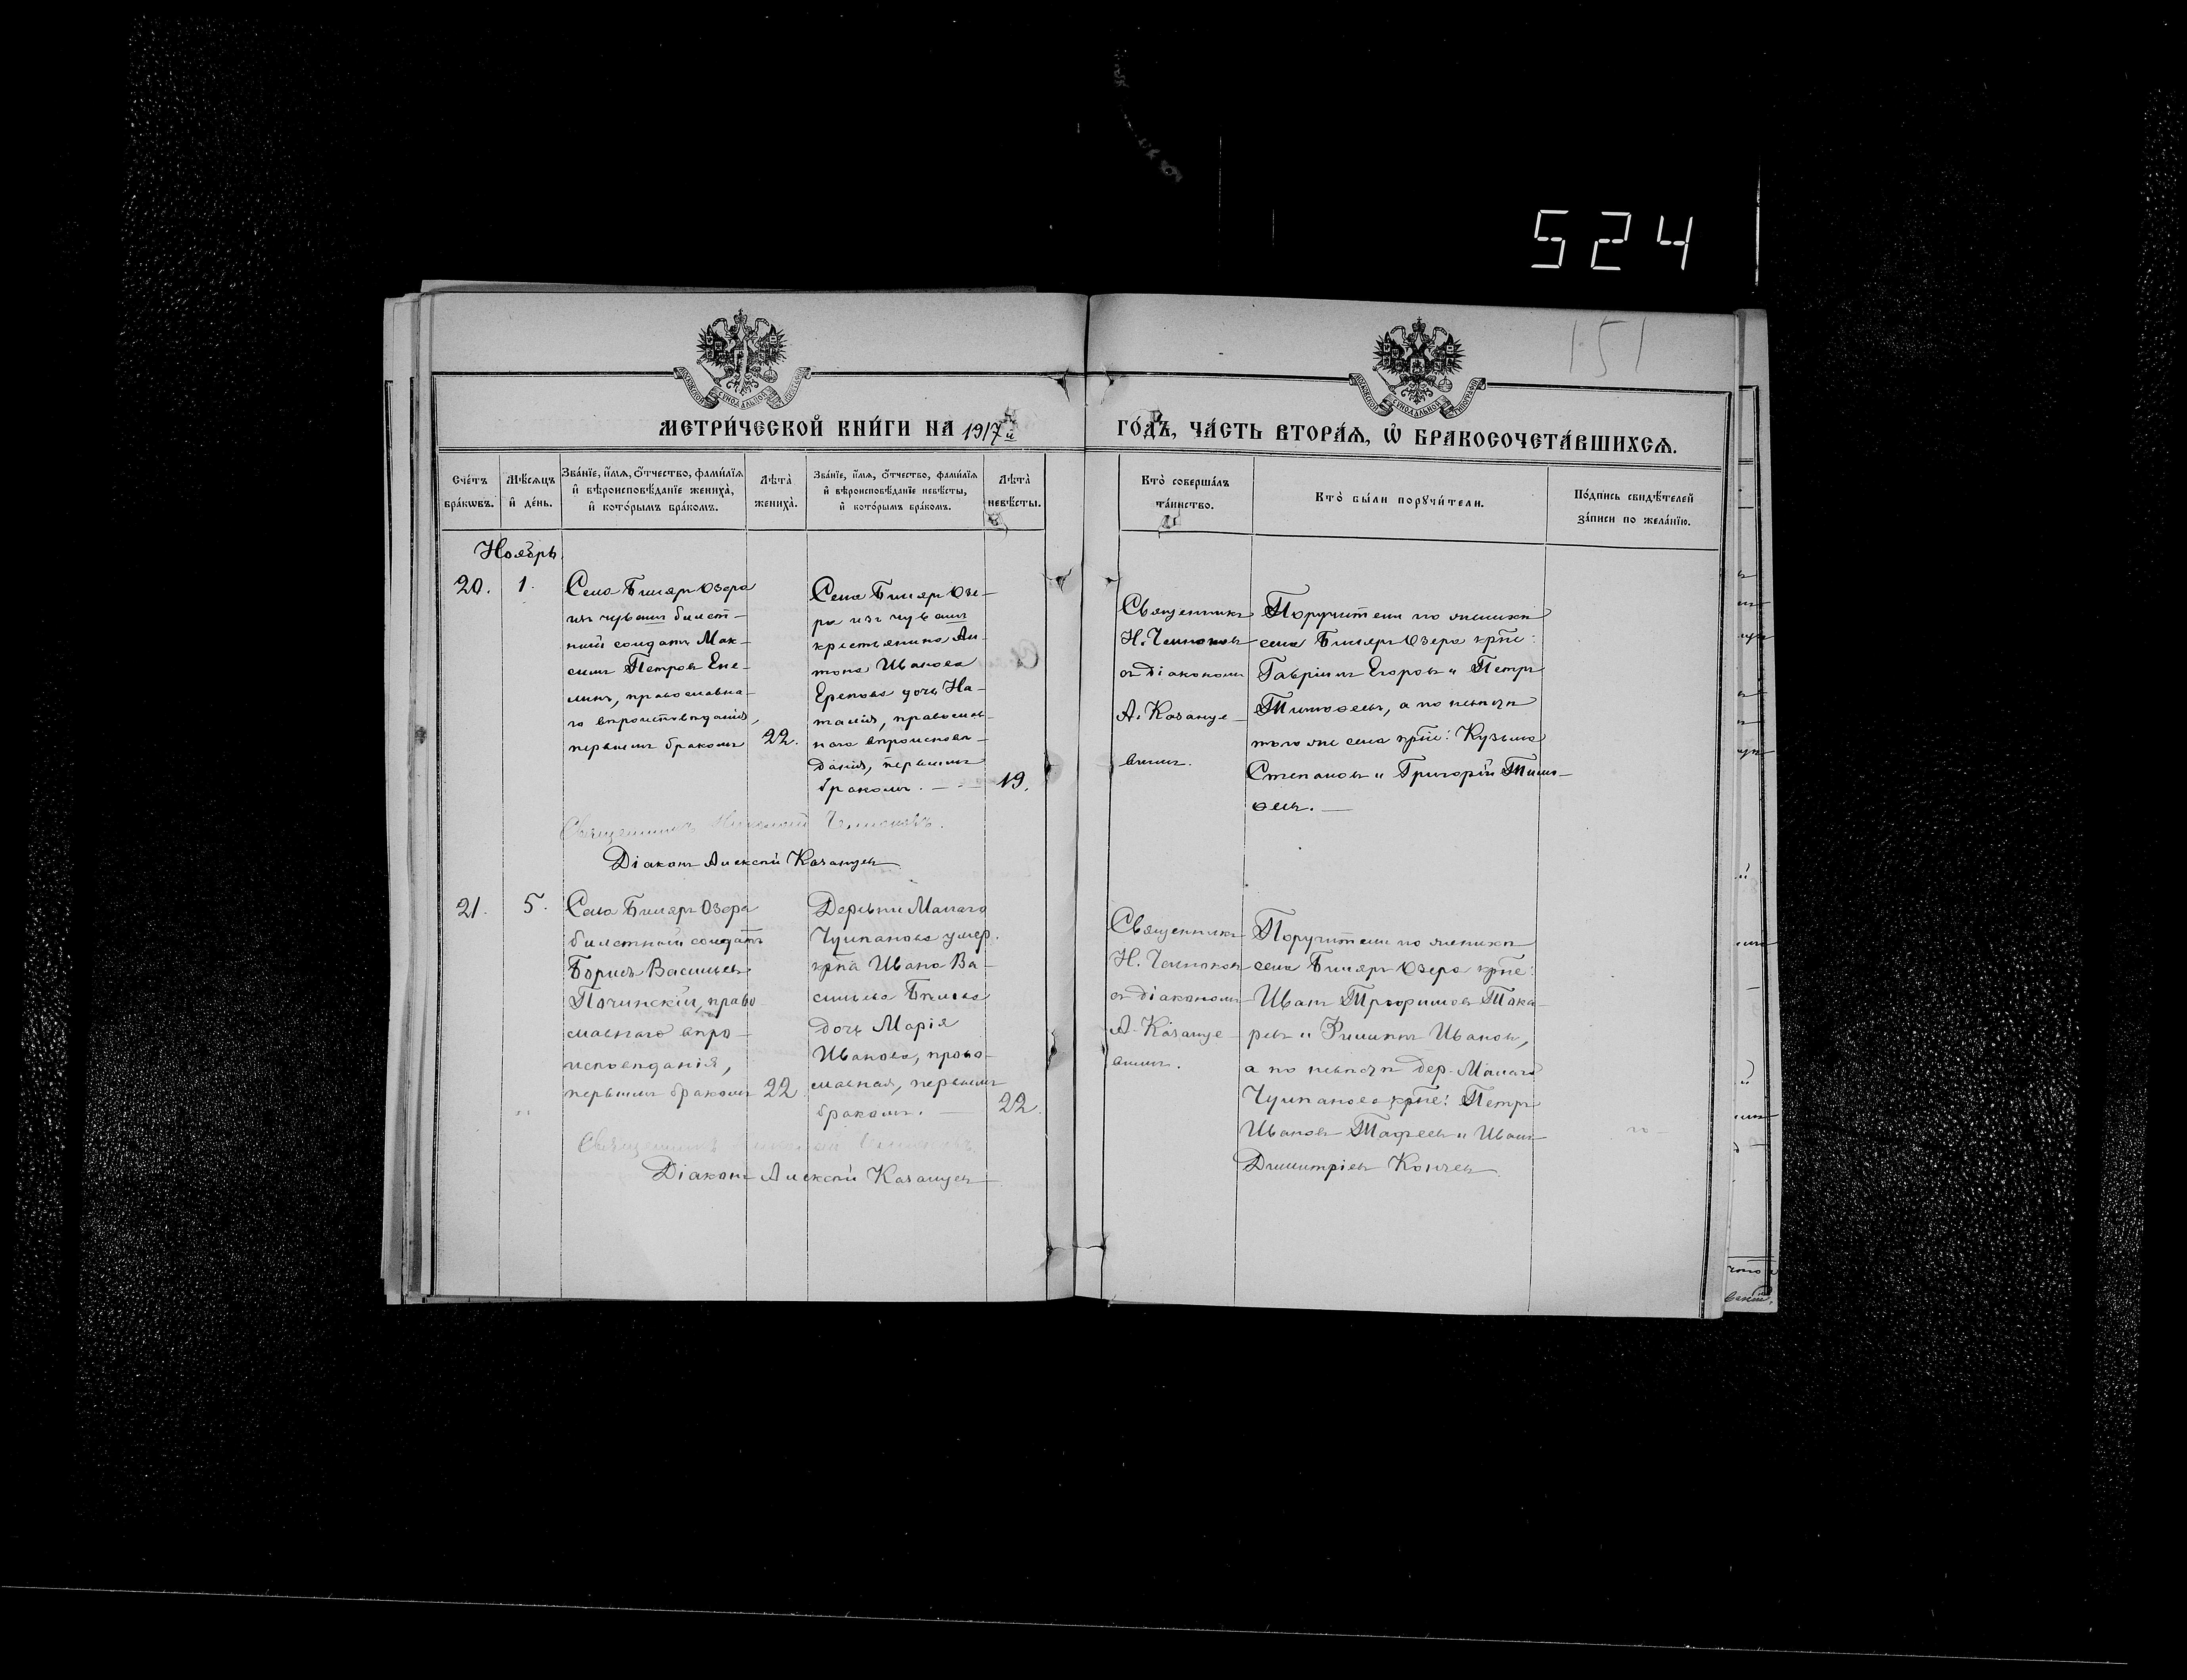 524
151
МОСКОВСКОЙ СѴНОДАЛЬНОЙ ТИПОГРАФІИ
МОСКОВСКОЙ СѴНОДАЛЬНОЙ ТИПОГРАФІИ
МЕТРИ́ЧЕСКОЙ КНИ́ГИ НА 1917й
ГО́ДЪ, ЧА́СТЬ ВТОРА́Ѧ, Ѡ҆ БРАКОСОЧЕТА́ВШИХСѦ.
Сче́тъ бра́кѡвъ.
Мѣ́сѧцъ и҆ де́нь.
Зва́нїе, и҆́мѧ, ѻ҆́тчество, фами́лїѧ и҆ вѣроисповѣ́данїе жениха̀, и҆ кото́рымъ бра́комъ.
Лѣ́та̀ жениха̀.
Зва́нїе, и҆́мѧ, ѻ҆́тчество, фами́лїѧ и҆ вѣроисповѣ́данїе невѣ́сты, и҆ кото́рымъ бра́комъ.
Лѣ́та̀ невѣ́сты.
Кто̀ соверша́лъ та́инство.
Кто̀ бы́ли порꙋчи́тели.
По́дпись свидѣ́телей за́писи по жела́нїю.
Ноябрь
20.
1.
Села Биляр Озера
изъ чувашъ билет-
ный солдатъ Мак-
симъ Петровъ Епе-
линъ, православна-
го вѣроисповѣданія,
первымъ бракомъ
22.
Села Биляр Озе-
ра изъ чувашъ
крестьянина Ан-
тона Иванова
Ерепова дочь На-
талія, правосла-
наго вѣроисповѣ-
данія, первымъ
бракомъ. —
19.
Священникъ
Н. Челноковъ
съ діакономъ
А. Казанце-
вымъ.
Поручители по женихѣ
села Биляръ Озера крне:
Гавріилъ Егоровъ и Петръ
Тимофеевъ, а по невѣстѣ
того же села крне: Кузьма
Степановъ и Григорій Тимо-
феевъ. —
Священникъ Николай Челноковъ.
Діаконъ Алексѣй Казанцевъ
21.
5.
Села Биляръ Озера
билетный солдатъ
Борисъ Васильевъ
Починскій, право
славнаго вѣро-
исповѣданія,
первымъ бракомъ
22
Деревни Малаго
Чулпанова умер.
крна Ивана Ва-
сильева Бѣлова
дочь Марія
Иванова, право-
славная, первымъ
бракомъ. —
22.
Священникъ
Н. Челноковъ
съ діакономъ
А. Казанце-
вымъ.
Поручители по женихѣ
села Биляръ Озера крне:
Иванъ Трофимовъ Тока-
ревъ и Филиппъ Ивановъ,
а по невѣстѣ дер. Малаго
Чулпанова крне: Петръ
Ивановъ Тафеевъ и Иванъ
Димитріевъ Кончевъ
Священникъ Николай Челноковъ.
Діаконъ Алексѣй Казанцевъ